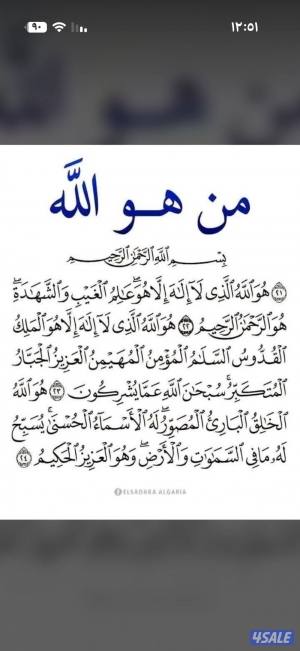 ١٢:٥١
٩٠
من هو الله
من هــو اللَّه
بِسْمِ اللَّهِ الرَّحْمَٰنِ الرَّحِيمِ
٢١ هُوَ اللَّهُ الَّذِي لَا إِلَٰهَ إِلَّا هُوَ ۖ عَالِمُ الْغَيْبِ وَالشَّهَادَةِ ۖ
هُوَ الرَّحْمَٰنُ الرَّحِيمُ ٢٢ هُوَ اللَّهُ الَّذِي لَا إِلَٰهَ إِلَّا هُوَ الْمَلِكُ
الْقُدُّوسُ السَّلَامُ الْمُؤْمِنُ الْمُهَيْمِنُ الْعَزِيزُ الْجَبَّارُ
الْمُتَكَبِّرُ ۚ سُبْحَانَ اللَّهِ عَمَّا يُشْرِكُونَ ٢٣ هُوَ اللَّهُ
الْخَالِقُ الْبَارِئُ الْمُصَوِّرُ ۖ لَهُ الْأَسْمَاءُ الْحُسْنَىٰ ۚ يُسَبِّحُ
لَهُ مَا فِي السَّمَاوَاتِ وَالْأَرْضِ ۖ وَهُوَ الْعَزِيزُ الْحَكِيمُ ٢٤
ELSADARA ALGARIA
4SALE